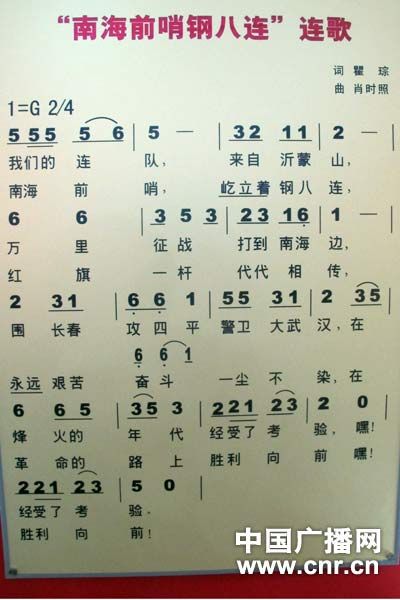 “南海前哨钢八连”连歌
词 瞿 琮
曲 肖时照
1=G 2/4
5 55 5 6 | 5 — | 32 11 | 2 — |
我们的连 队, 来自沂蒙山,
南海前 哨, 屹立着钢八连,
6 6 | 3 5 3 | 23 16 | 1 — |
万 里 征战 打到南海边,
红 旗 一杆 代代相传,
2 31 | 6 6 1 | 55 31 | 2 35 |
围长春 攻四平 警卫大武汉,在
6 6 1
永远艰苦 奋斗 一尘不染,在
6 6 5 | 35 3 | 2 21 23 | 2 0 |
烽火的年代 经受了考验,嘿!
革命的路上 胜利向前嘿!
2 21 23 | 5 0 |
经受了考验,
胜利向前!
中国广播网
www.cnr.cn